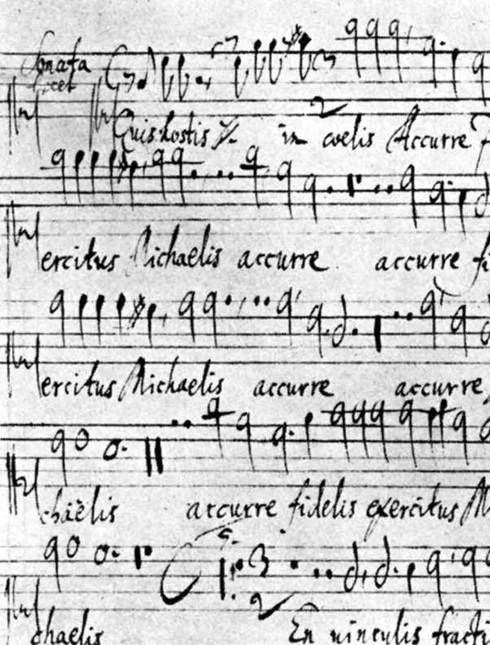 Sonata
licet
Quis hostis in coelis Accurre
ercitus Michaelis accurre accurre fi
ercitus Michaelis accurre accurre,
chaëlis accurre fidelis exercitus M
chaelis En vinculis fracti